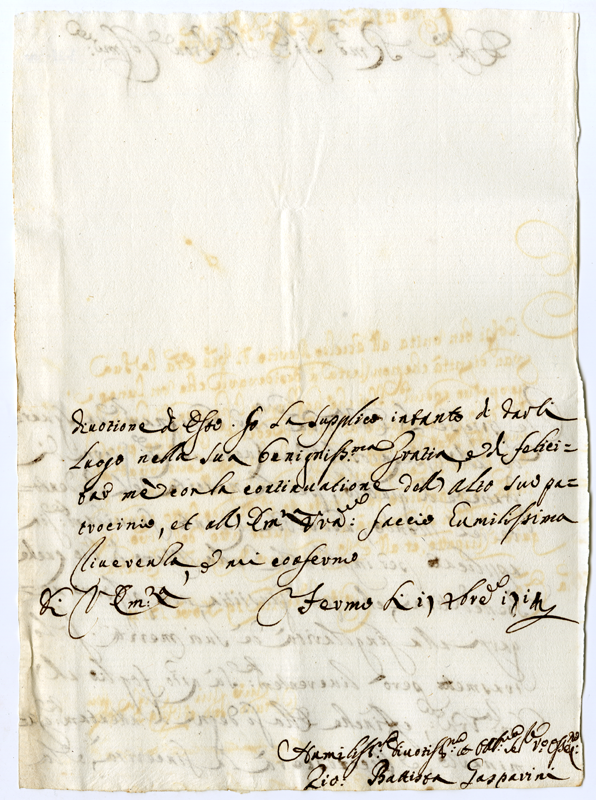 divotione di Esso. Io La supplico intanto di darli
Luogo nella sua benigniss.ma Gratia, e di felici-
tar mè con la continuatione dell'Alto suo pa-
trocinio, et all'Em.za Vra: faccio humilissima
Riverenza, e mi confermo
Di V. Em.za Fermo li 17 Xbre 1714
Humiliss.o divotiss.o et obb.mo
Gio: Battista Gasparini